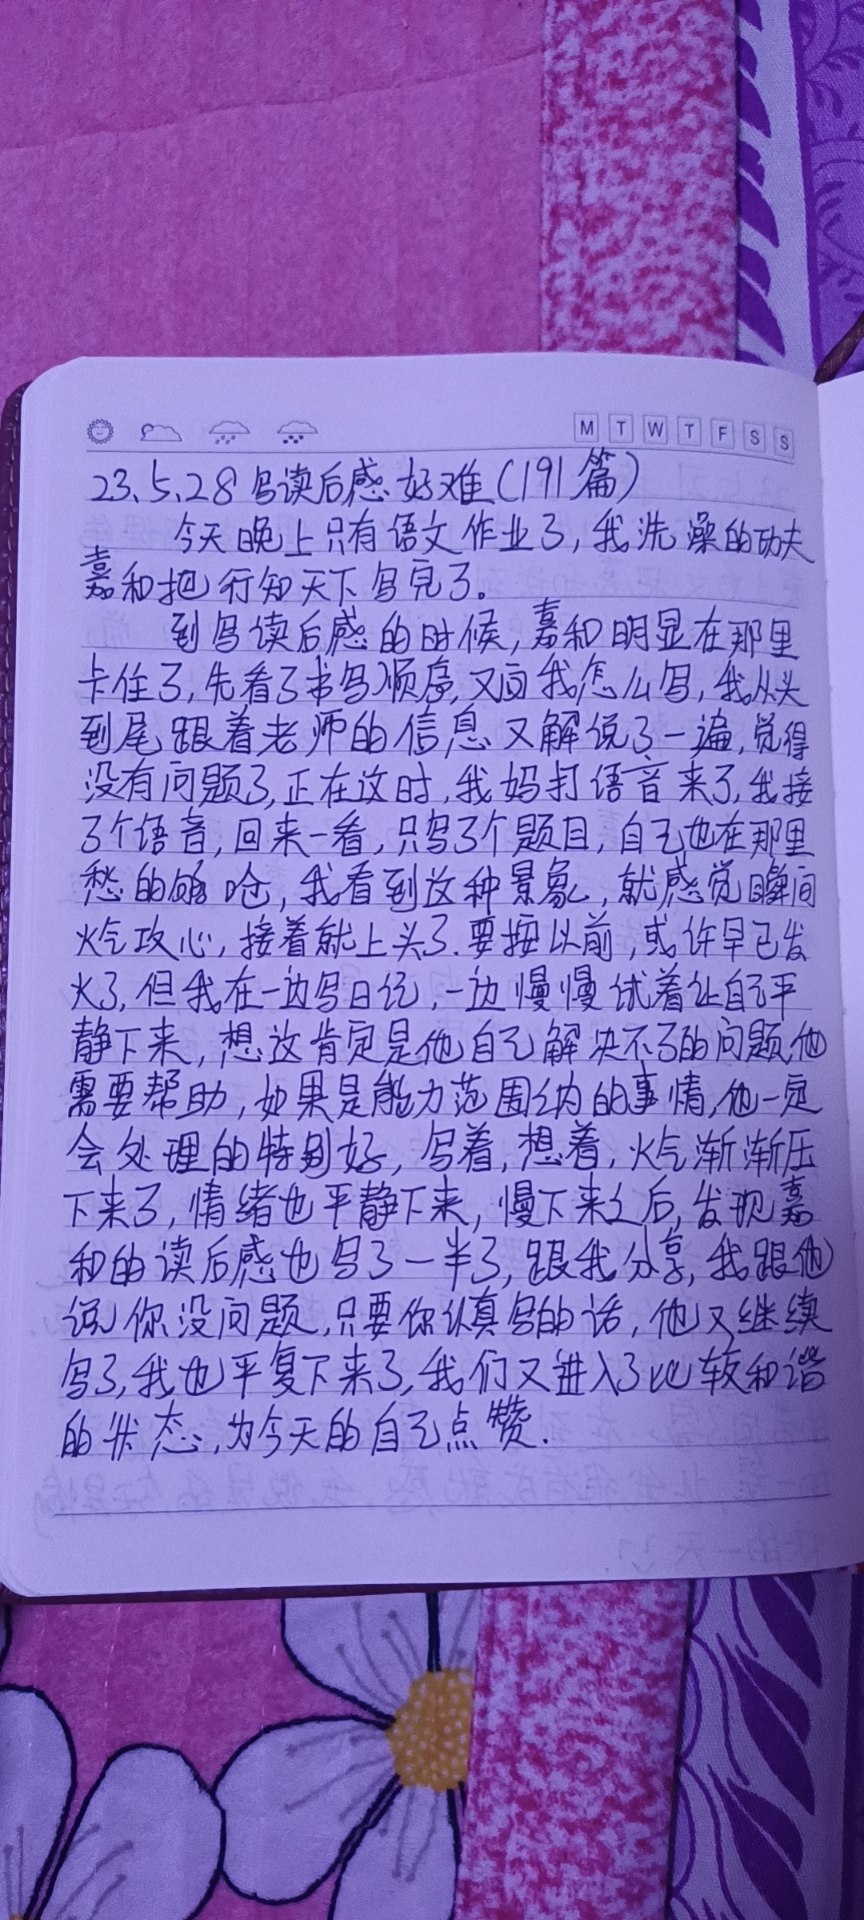 M T W T F S S
23.5.28写读后感好难(191篇)
今天晚上只有语文作业了,我洗澡的功夫
嘉和把行知天下写完了。
到写读后感的时候,嘉和明显在那里
卡住了,先看了书写顺序,又问我怎么写,我从头
到尾跟着老师的信息又解说了一遍,觉得
没有问题了,正在这时,我妈打语音来了,我接
了个语音,回来一看,只写了个题目,自己也在那里
愁的够呛,我看到这种景象,就感觉瞬间
火气攻心,接着就上头了.要按以前,或许早已发
火了,但我在一边写日记,一边慢慢试着让自己平
静下来,想这肯定是他自己解决不了的问题,他
需要帮助,如果是能力范围之内的事情,他一定
会处理的特别好,写着,想着,火气渐渐压
下来了,情绪也平静下来,慢下来之后,发现嘉
和的读后感也写了一半了,跟我分享,我跟他
说你没问题,只要你认真写的话,他又继续
写了,我也平复下来了,我们又进入了比较和谐
的状态,为今天的自己点赞.